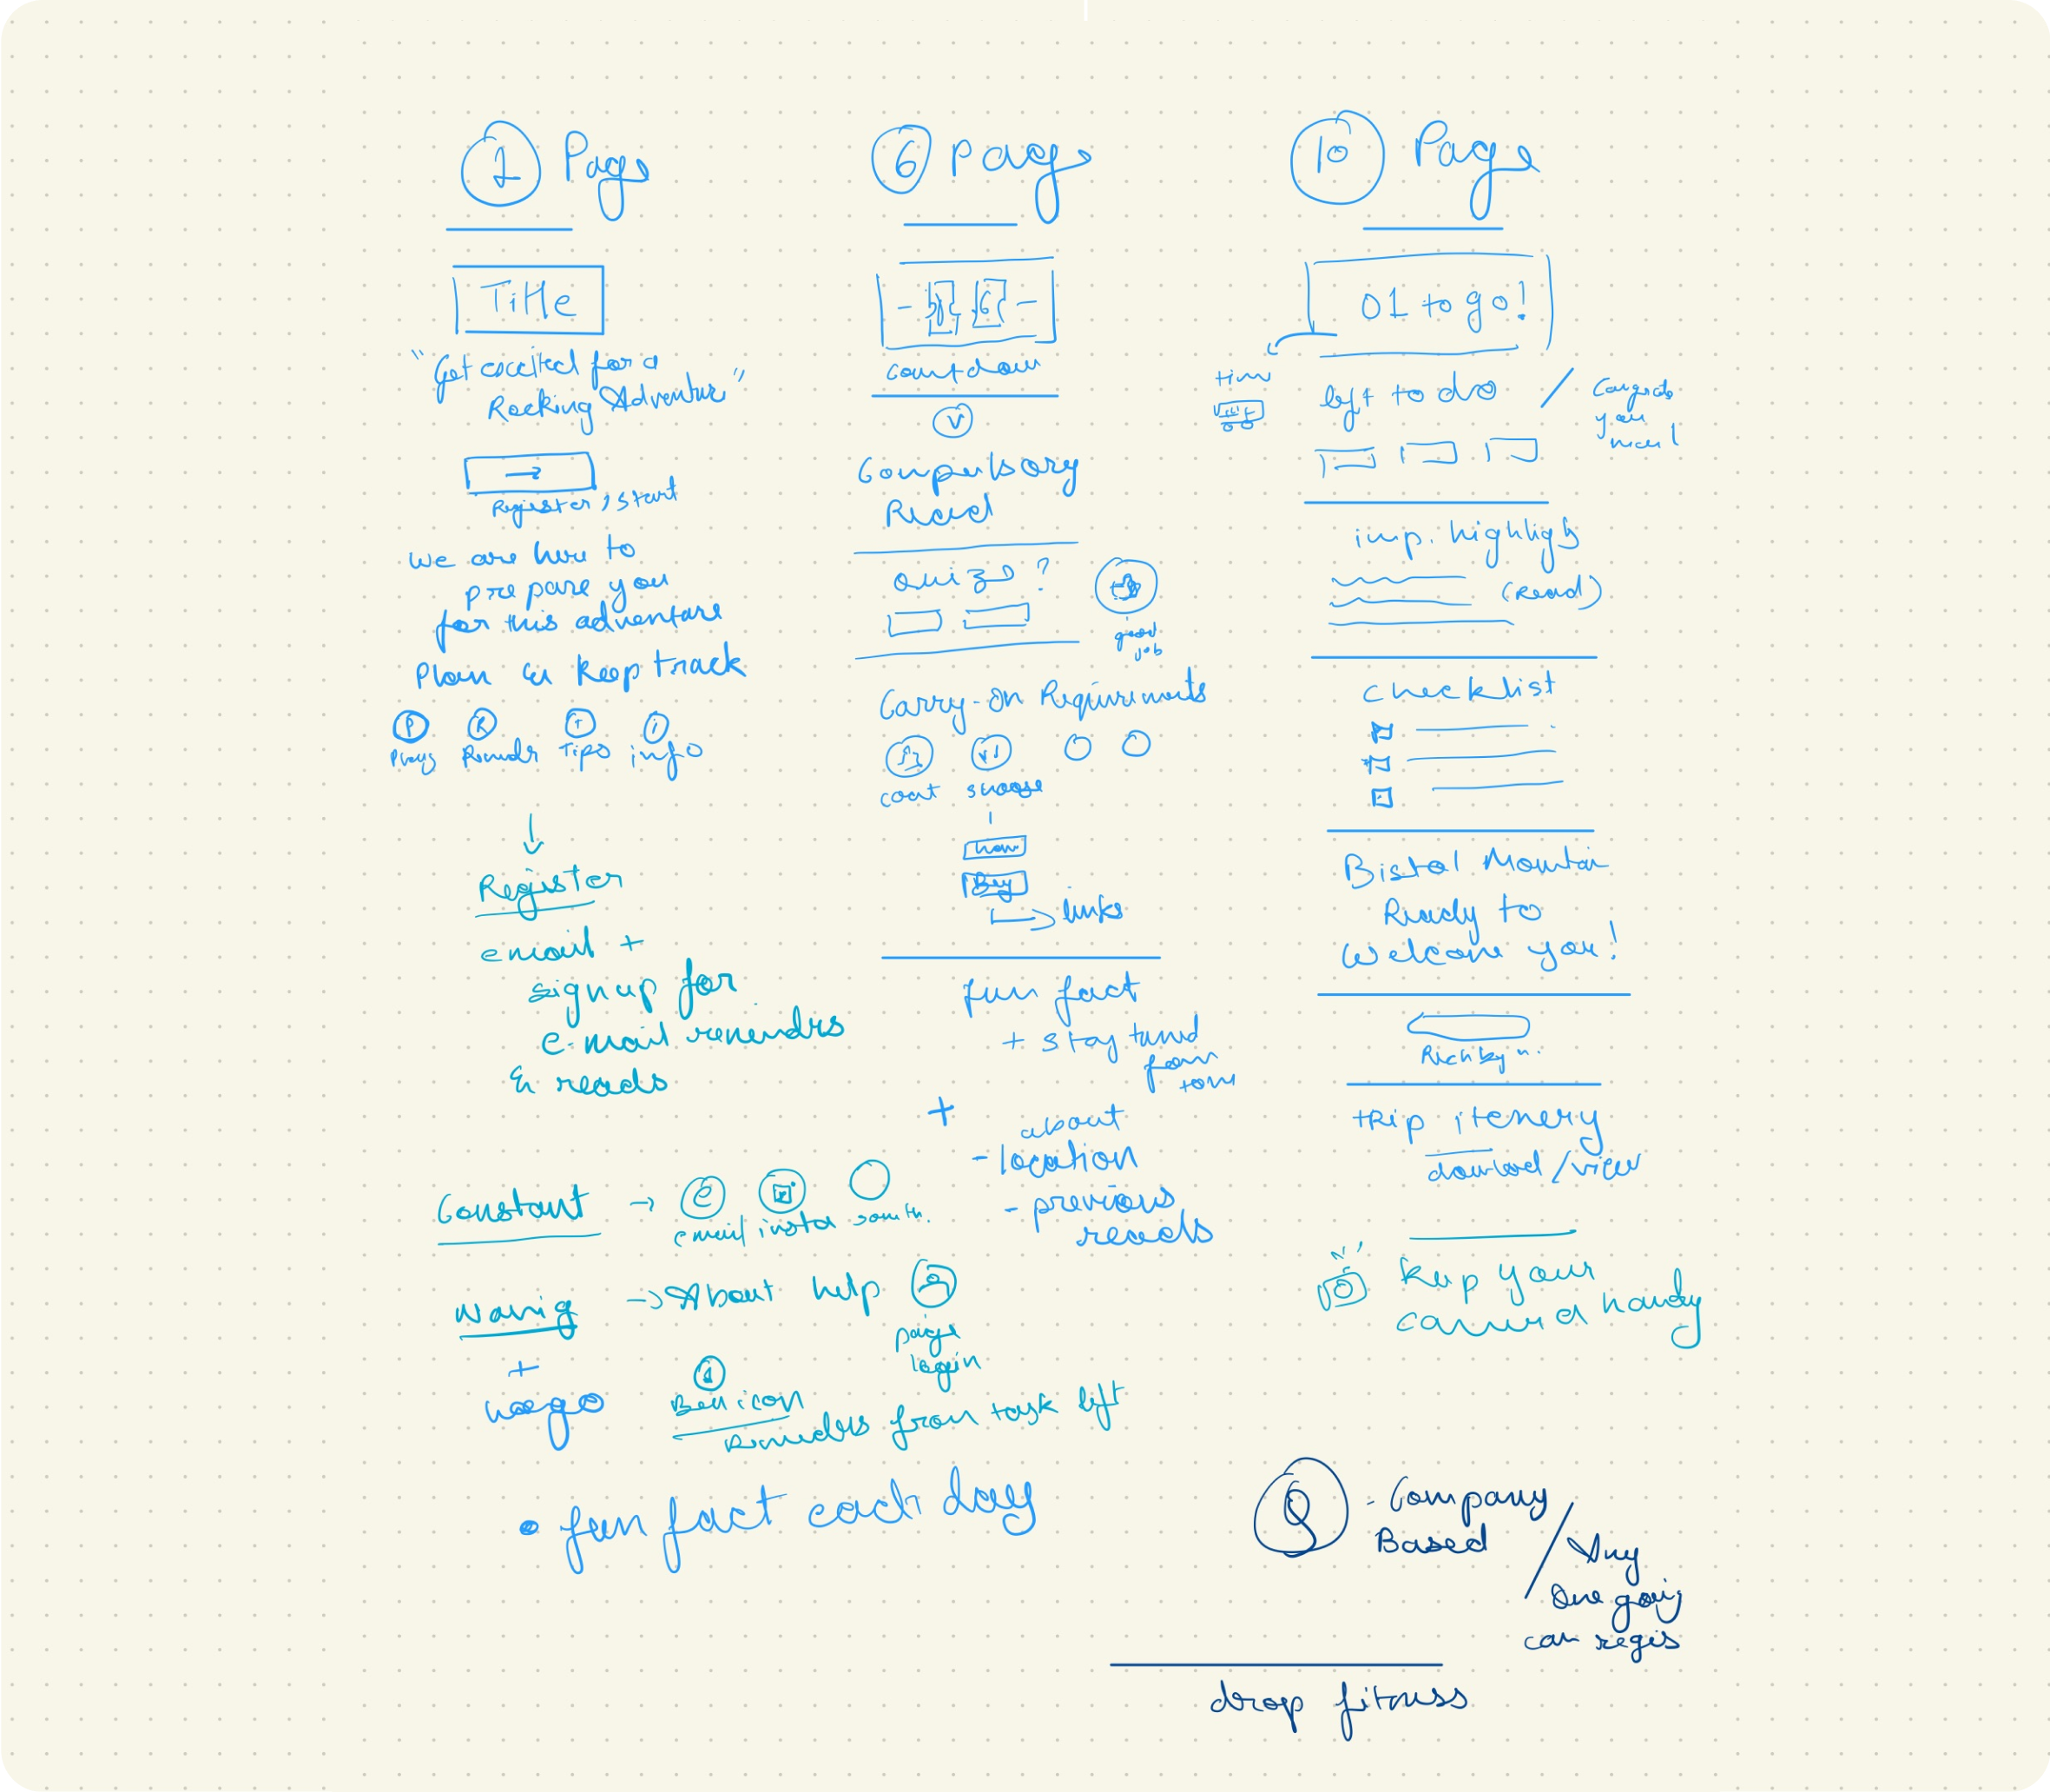 1 Page
Title
"Get excited for a
Rocking Adventure"
→
Register, start
we are here to
prepare you
for this adventure
Plan & Keep track
P R T i
Tips info
↓
Register
email +
signup for
e-mail reminders
& reads
Constant → e
email insta
Navig → About help
page
login
+
Bell icon
Reminders from task left
• fun fact each day
6 page
6
countdown
V
Compulsory
Read
Quizo?
good
job
Carry-On Requirements
coat
Buy
→ links
fun fact
+ stay tuned
+
about
- location
- previous
reads
10 Page
01 to go!
left to do /
Congrats
you
imp. highlights
(Read)
Checklist
Bistol Mountain
Ready to
Welcome you!
trip itenery
download/view
Keep your
camera handy
Q - Company
Based
/ Any
One going
can regis
drop fitness